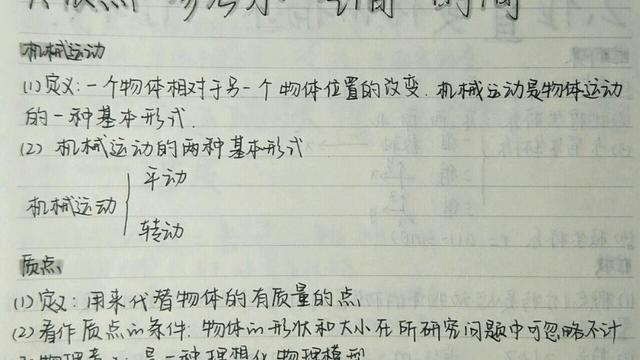 质点 参考系 空间 时间
机械运动
(1)定义:一个物体相对于另一个物体位置的改变.机械运动是物体运动
的一种基本形式.
(2) 机械运动的两种基本形式
平动
机械运动
转动
质点
(1)定义:用来代替物体的有质量的点
(2)看作质点的条件:物体的形状和大小在所研究问题中可忽略不计
是一种理想化物理模型